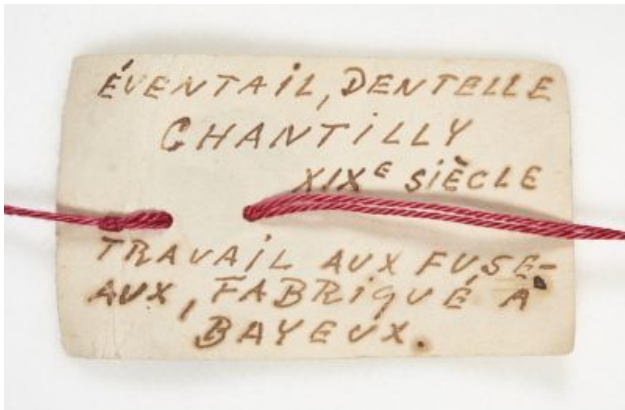 ÉVENTAIL, DENTELLE
CHANTILLY
XIXᴱ SIÈCLE
TRAVAIL AUX FUSE-
AUX, FABRIQUÉ À
BAYEUX.